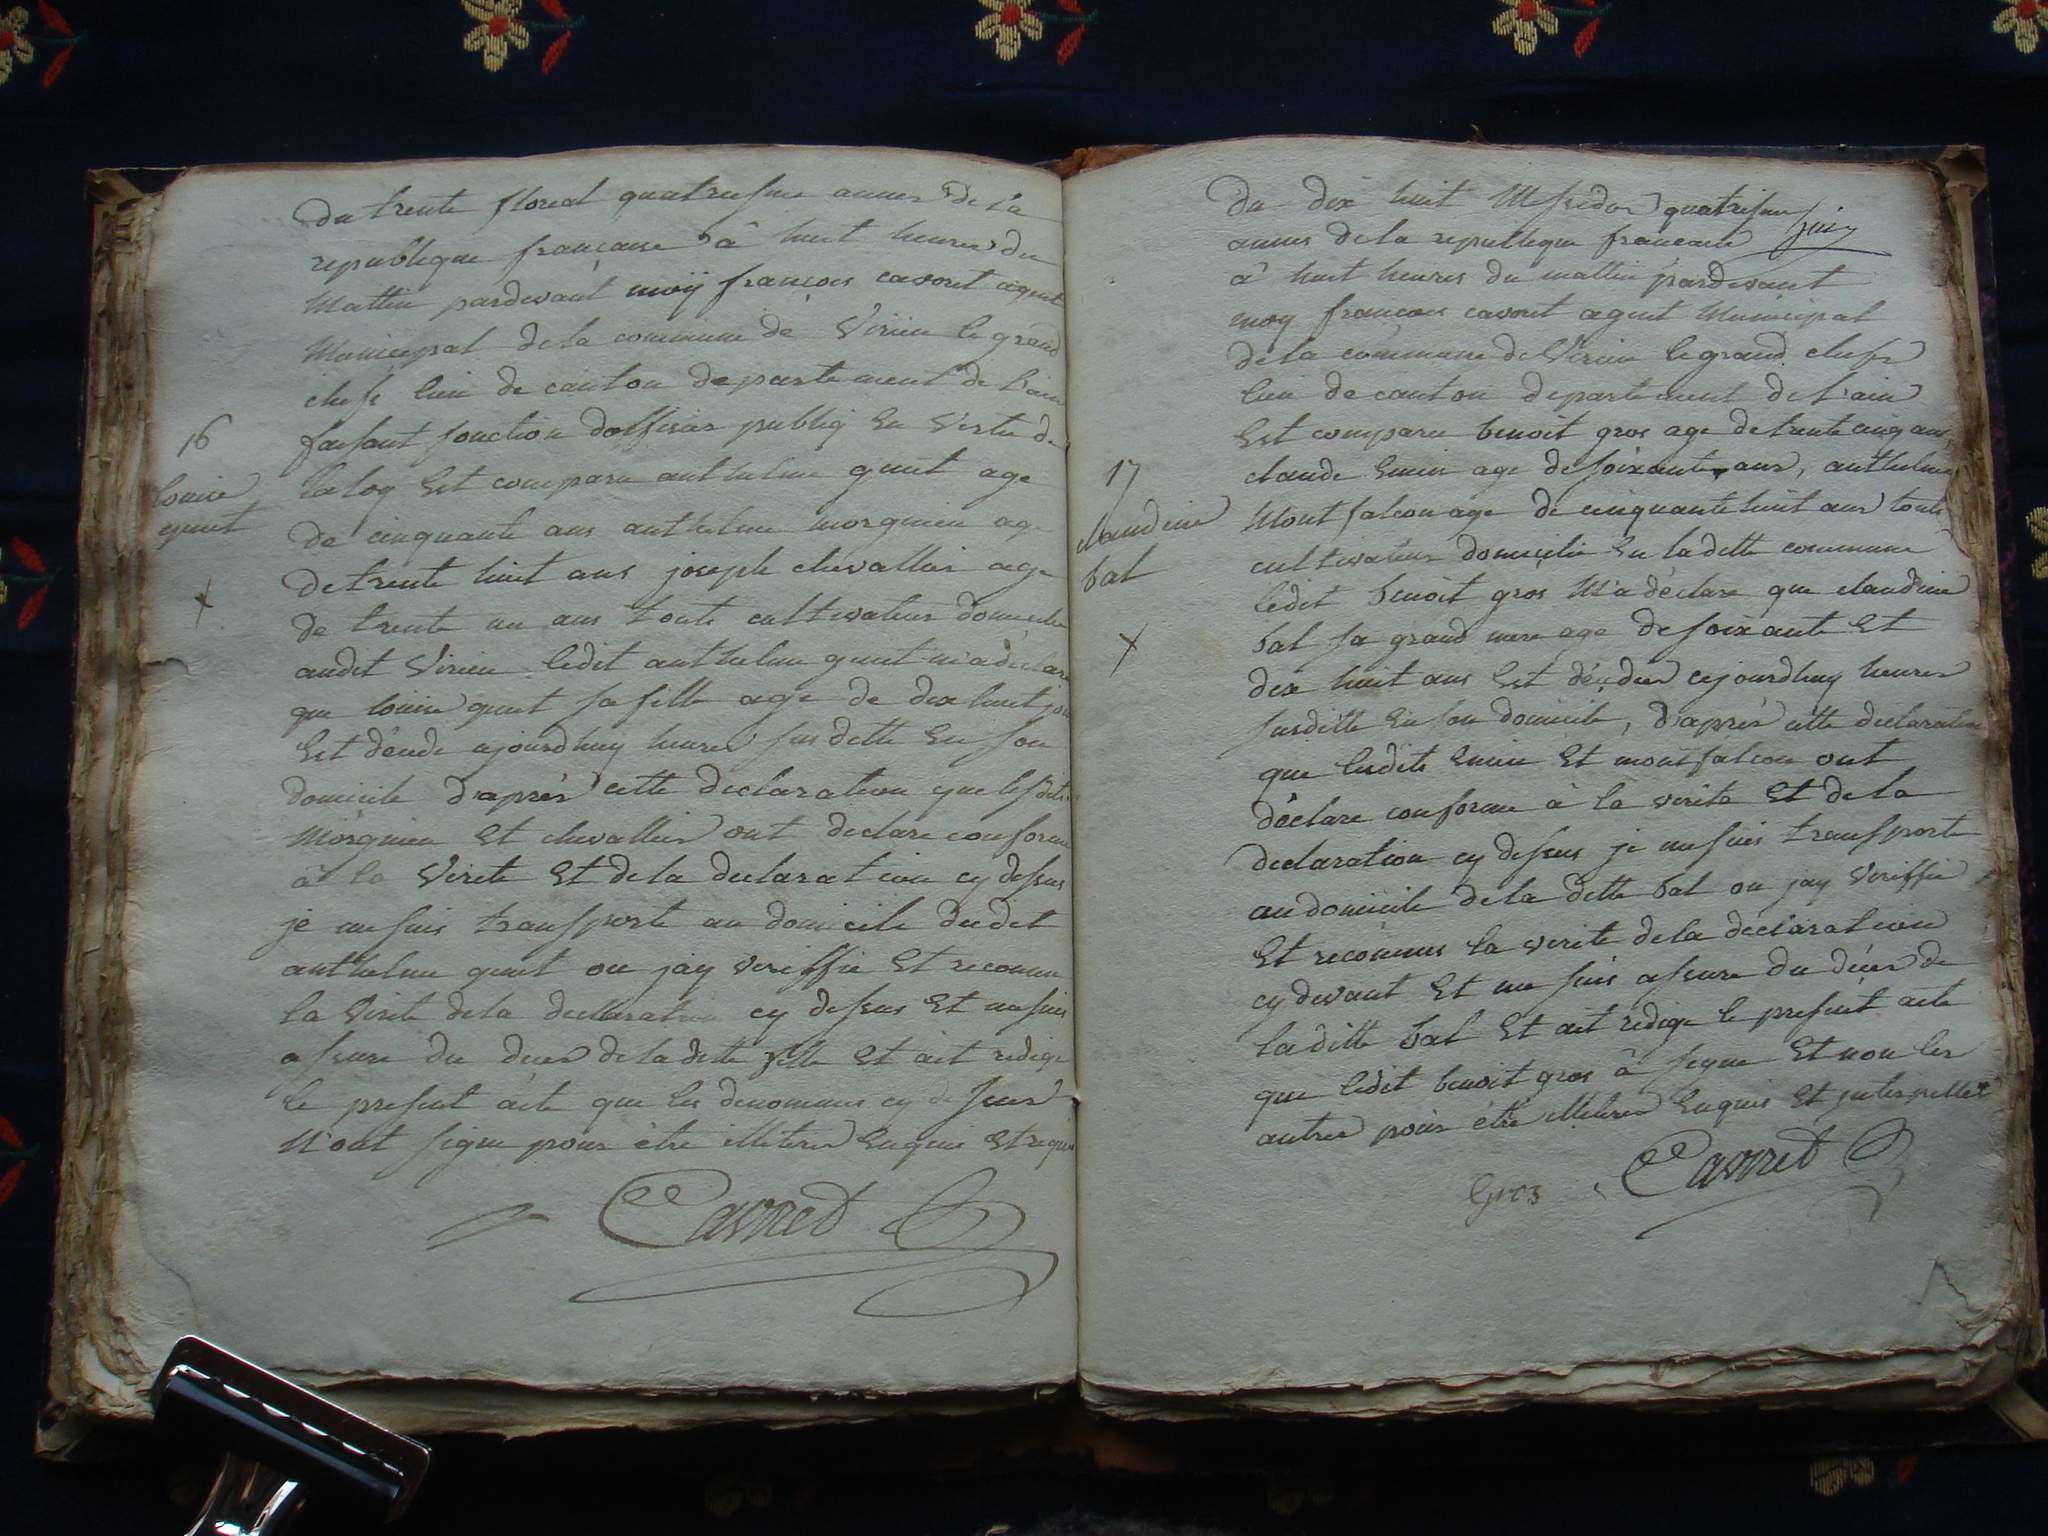 du trente floreal quatriesme annee de la
republique francaise à huit heures du
Mattin pardevant moÿ francois cavoret agent
Municipal de la commune de Virieu le grand
chefs lieu de canton departement de l'ain
faisant fonction dofficier publiq en Vertu de
la loy Est comparu anthelme guut age
de cinquante ans anthelme morgnieu age
de trente huit ans joseph chevallier age
de trente un ans touts cultivateur domicilie
audit Virieu ledit anthelme guut m'a declare
que louise guut sa fille age de dix huit jour
Est décéde cejourdhuy heures susditte En son
domicile d'aprés cette declaration que lesdits
Morgnieu Et chevallier ont declare conforme
à la Verite Et de la declaration cy dessus
je me suis transporte au domicile dudit
anthelme guut ou jay veriffie Et reconnu
la Verite de la declaration cy dessus Et me suis
assure du deces de la ditte fille Et ait redige
le present acte que les denommes cy dessus
N'ont signe pour être illitires Enquis Et requis
Cavoret
16
louise
guut
x
du dix huit Messidor quatriesme
annee de la republique francaise
à huit heures du mattin pardevant
moy francois cavoret agent Municipal
de la commune de Virieu le grand chefs
lieu de canton departement de l'ain
Est comparu benoit gros age de trente cinq ans
claude Emin age de soixante ans, anthelme
Montfalcon age de cinquante huit ans touts
cultivateur domicilie En la ditte commune
ledit benoit gros M'a déclare que claudine
bal sa grand mere age de soixante Et
dix huit ans Est décédée cejourdhuy heures
susditte En son domicile, d'aprés cette declaration
que lesdits Emin Et montfalcon ont
déclare conforme à la verite Et de la
declaration cy dessus je me suis transporte
au domicile de la ditte bal ou jay veriffie
Et reconnus la verite de la declaration
cy devant Et me suis assure du déces de
la ditte bal Et ait redige le present acte
que ledit benoit gros à signe Et non les
autres pour être illitires Enquis Et interpelles
Gros Cavoret
17
claudine
bal
x